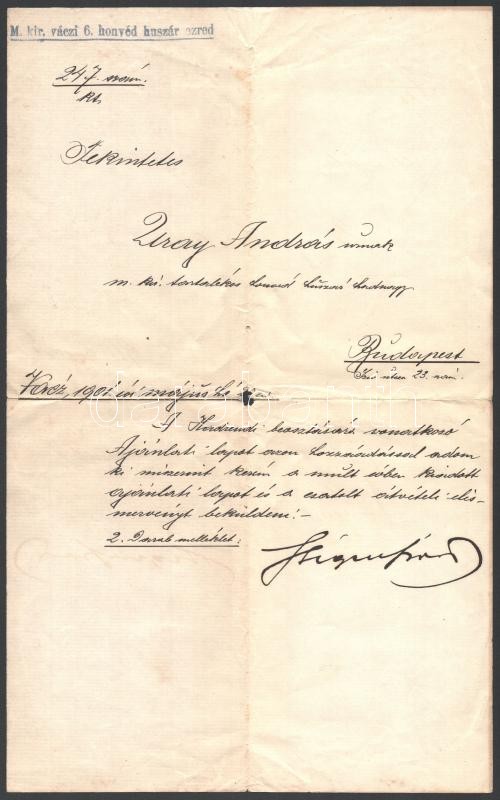 M. kir. váczi 6. honvéd huszár ezred
247. szám.
kt.
Tekintetes
Uray András úrnak
m. kir. tartalékos honvéd huszár hadnagy
Budapest
utcza 23. szám.
Vácz, 1901 évi május hó
A Hadrendi beosztására vonatkozó
Ajánlati lapot azon hozzáadással adom
ki miszerint kérem a mult évben kiadott
ajánlati lapot és a csatolt átvételi elis-
mervényt beküldeni:-
2. Darab melléklet:
darabanth